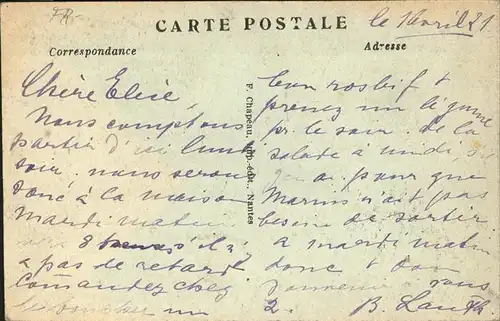 CARTE POSTALE
le 1 Avril 21
Correspondance
Adresse
Chère Elise,
Nous comptons
partir d'ici lundi
soir, nous serons
donc à la maison
Mardi matin
vers 8 heures s'il n'y
a pas de retard.
Comandez chez
le boucher un
bon rosbif et
prenez un légume
pr. le soir de la
salade à midi s'il
y en a pour que
Marius n'ait pas
besoin de sortir
a mardi matin
donc et bon
à vous
2. B. Lauth
F. Chapeau, imp.-édit., Nantes